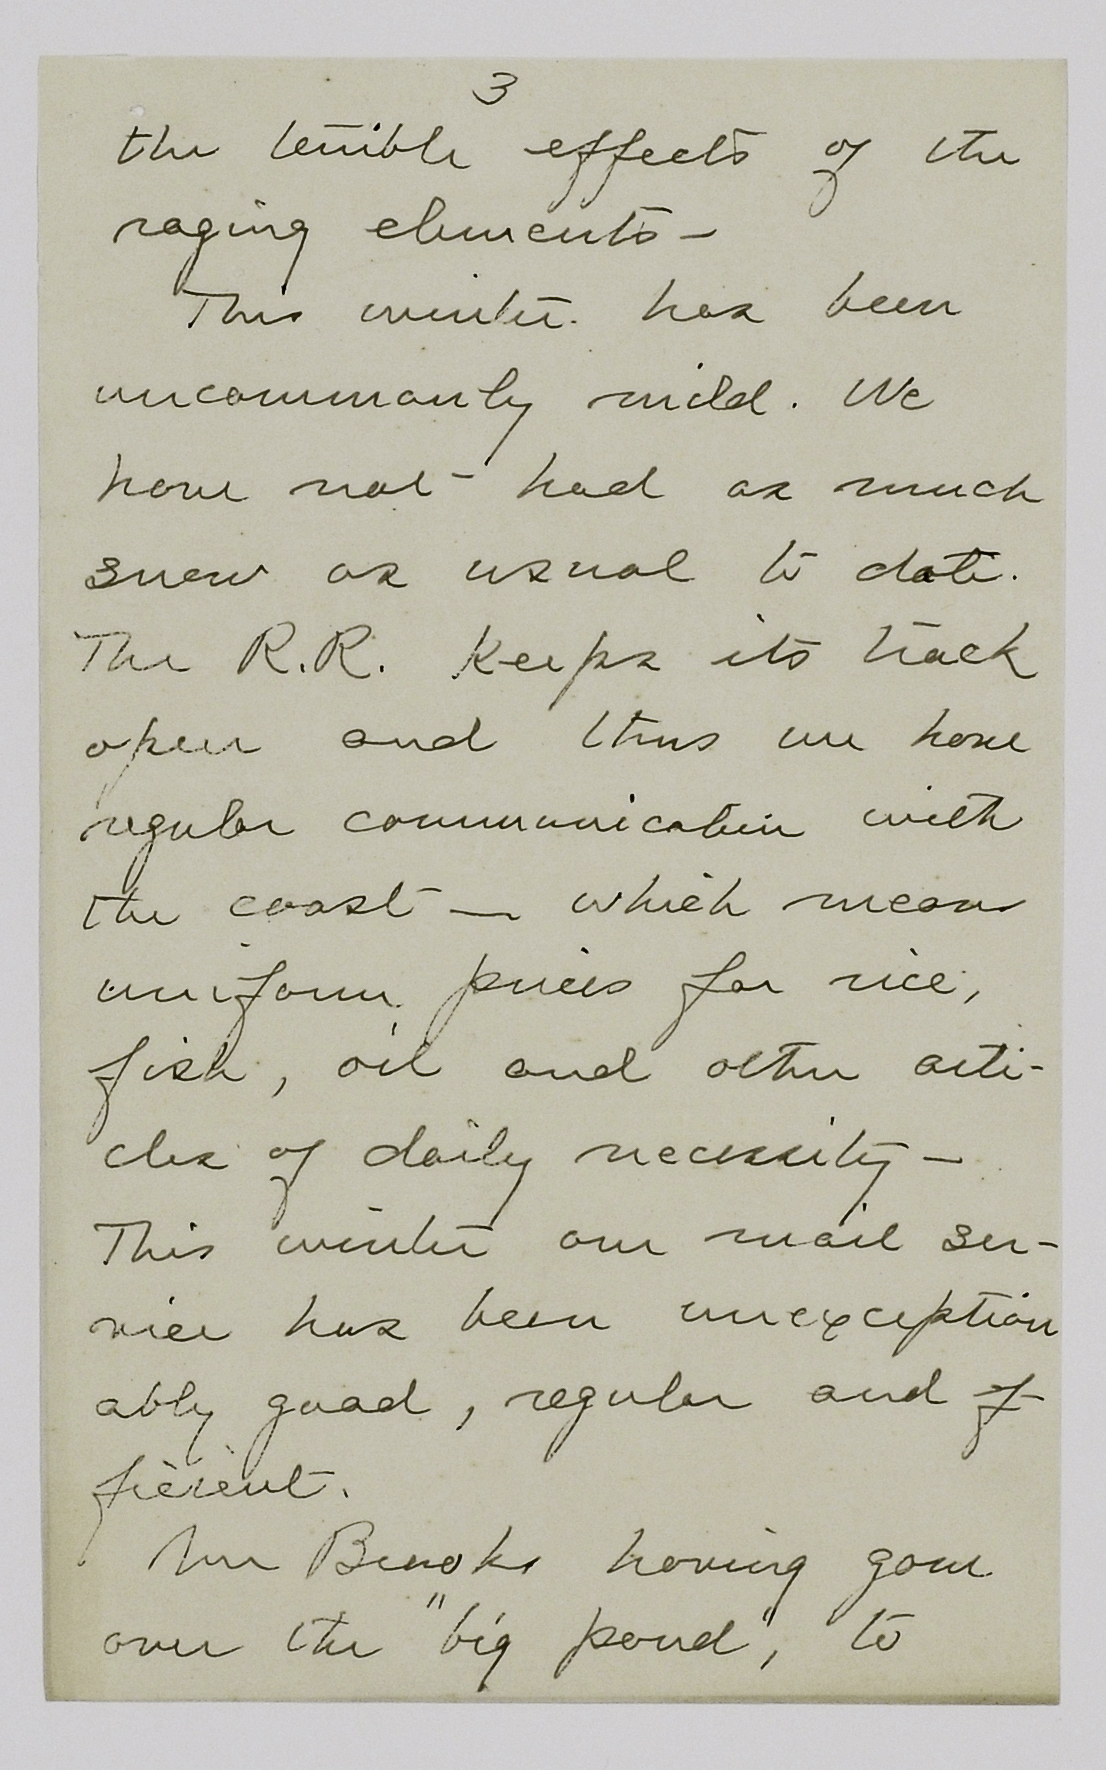 3
the terrible effects of the
raging elements —
This winter has been
uncommonly mild. We
have not had as much
snow as usual to date.
The R.R. keeps its track
open and thus we have
regular communication with
the coast — which means
uniform prices for rice,
fish, oil and other arti-
cles of daily necessity —
This winter our mail ser-
vice has been unexception
ably good, regular and ef
ficient.
Mr Brooks having gone
over the "big pond", to